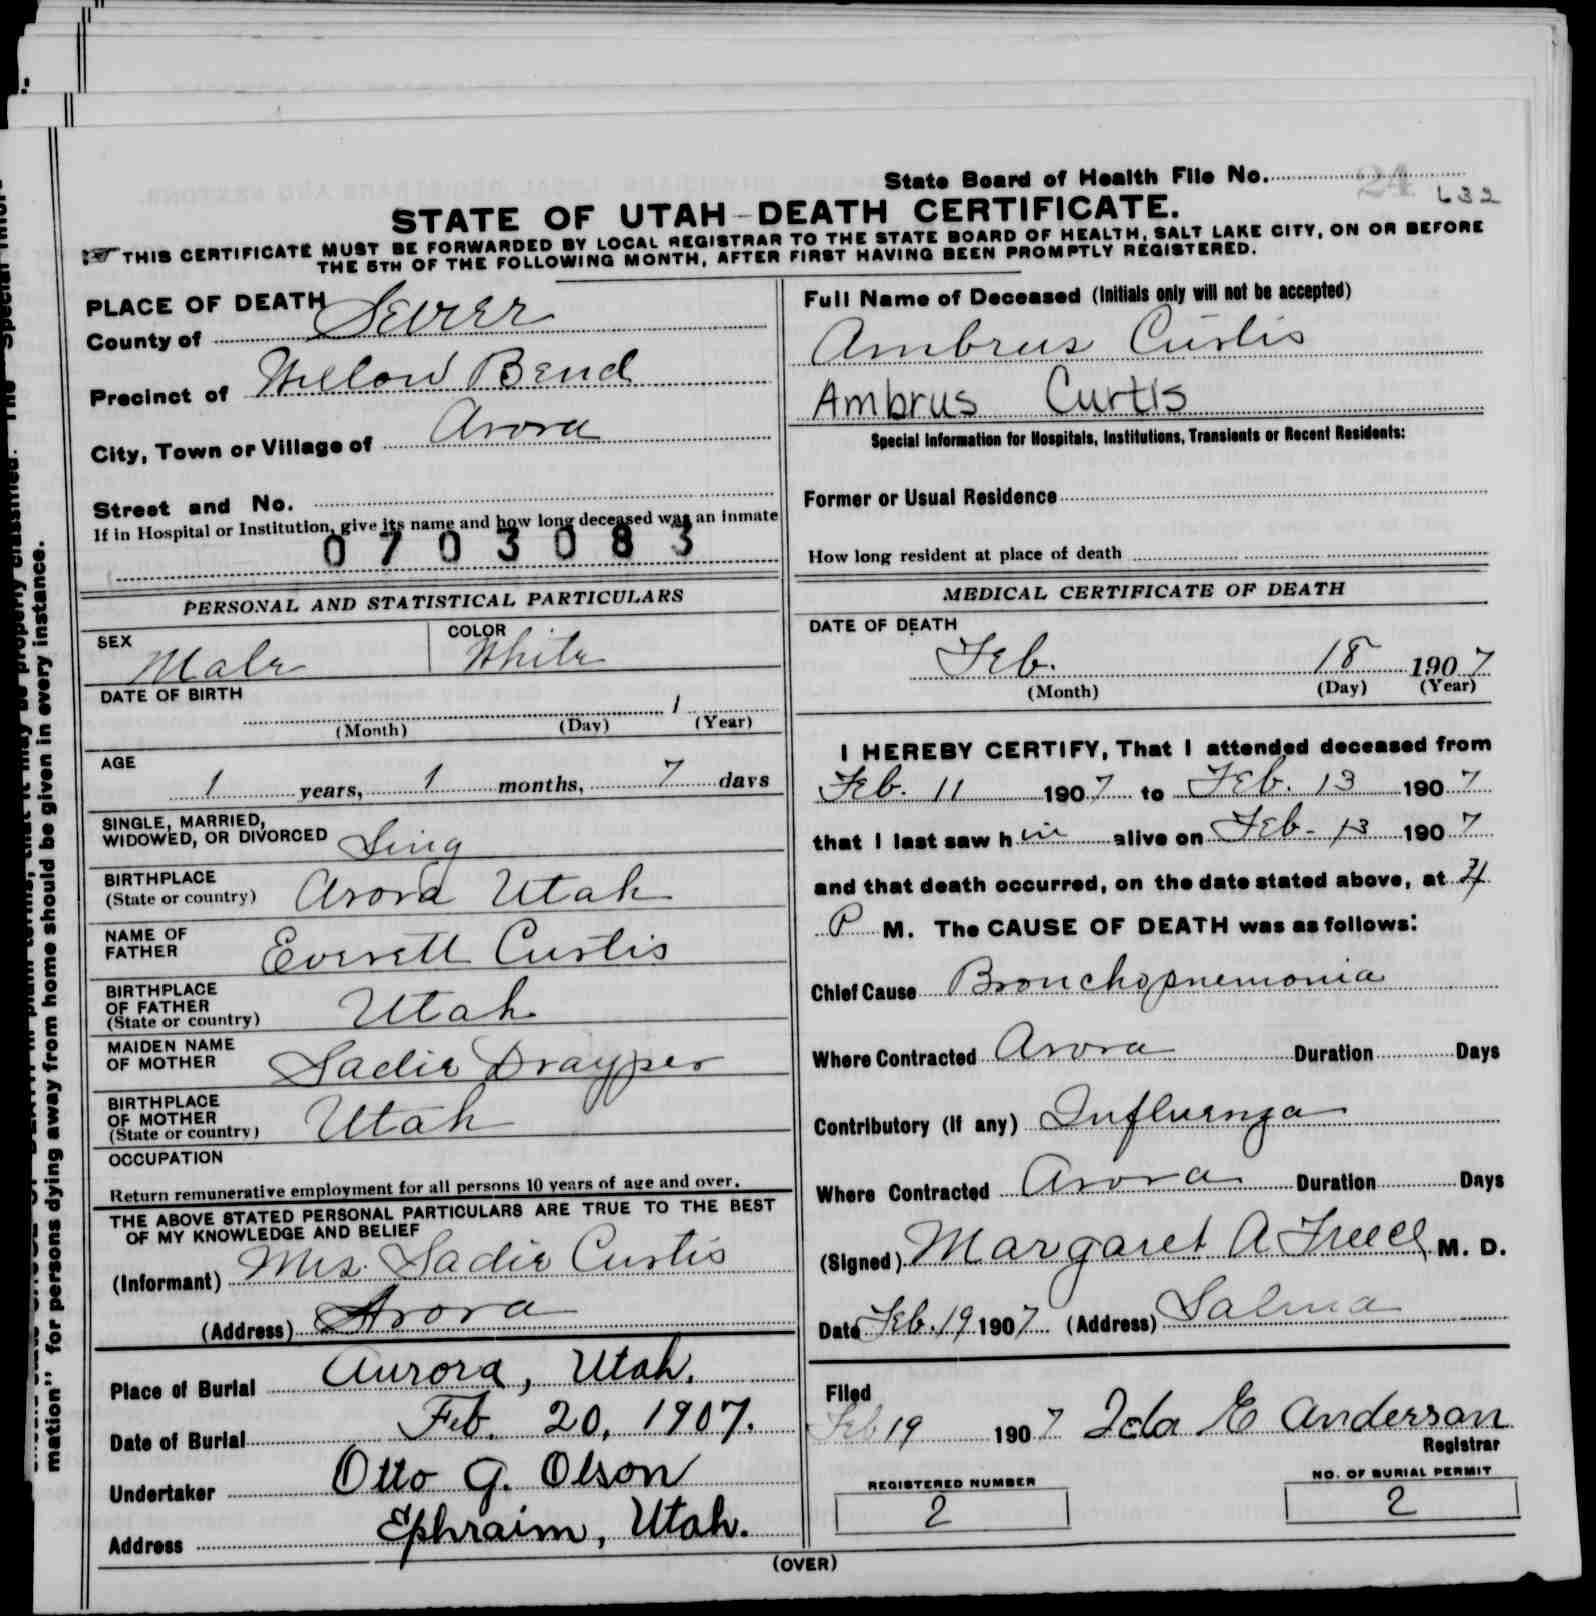 State Board of Health File No. 24 632
STATE OF UTAH - DEATH CERTIFICATE.
THIS CERTIFICATE MUST BE FORWARDED BY LOCAL REGISTRAR TO THE STATE BOARD OF HEALTH, SALT LAKE CITY, ON OR BEFORE
THE 5TH OF THE FOLLOWING MONTH, AFTER FIRST HAVING BEEN PROMPTLY REGISTERED.
PLACE OF DEATH
County of Sevier
Precinct of Willow Bend
City, Town or Village of Arora
Street and No.
If in Hospital or Institution, give its name and how long deceased was an inmate
0703083
PERSONAL AND STATISTICAL PARTICULARS
SEX Male
COLOR White
DATE OF BIRTH
1
(Month) (Day) (Year)
AGE
1 years, 1 months, 7 days
SINGLE, MARRIED,
WIDOWED, OR DIVORCED Sing
BIRTHPLACE
(State or country) Arora Utah
NAME OF
FATHER Everett Curtis
BIRTHPLACE
OF FATHER
(State or country) Utah
MAIDEN NAME
OF MOTHER Sadie Drayper
BIRTHPLACE
OF MOTHER
(State or country) Utah
OCCUPATION
Return remunerative employment for all persons 10 years of age and over.
THE ABOVE STATED PERSONAL PARTICULARS ARE TRUE TO THE BEST
OF MY KNOWLEDGE AND BELIEF
(Informant) Mrs. Sadie Curtis
(Address) Arora
Place of Burial Aurora, Utah.
Date of Burial Feb. 20, 1907.
Undertaker Otto G. Olson
Address Ephraim, Utah.
Full Name of Deceased (Initials only will not be accepted)
Ambrus Curtis
Ambrus Curtis
Special Information for Hospitals, Institutions, Transients or Recent Residents:
Former or Usual Residence
How long resident at place of death
MEDICAL CERTIFICATE OF DEATH
DATE OF DEATH
Feb. 18 1907
(Month) (Day) (Year)
I HEREBY CERTIFY, That I attended deceased from
Feb. 11 1907 to Feb. 13 1907
that I last saw him alive on Feb - 13 1907
and that death occurred, on the date stated above, at
P M. The CAUSE OF DEATH was as follows:
Chief Cause Bronchopnemonia
Where Contracted Arora Duration Days
Contributory (If any) Influenza
Where Contracted Arora Duration Days
(Signed) Margaret A Freece M. D.
Date Feb. 19 1907 (Address) Salina
Filed
Feb 19 1907 Ida E Anderson
Registrar
REGISTERED NUMBER
2
NO. OF BURIAL PERMIT
2
(OVER)
mation" for persons dying away from home should be given in every instance.